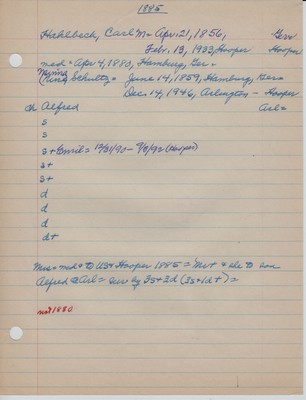 1885
Hahlbeck, Carl M= Apr. 21, 1856, Ger=
Feb. 13, 1933, Hooper Hooper
med= Apr 4, 1880, Hamburg, Ger=
Mimma
Schultz= June 14, 1859, Hamburg, Ger=
Dec. 14, 1946, Arlington - Hooper
ch Alfred Arl=
s
s
s + Emil= 12/21/90 - 9/9/92 (Hooper)
s+
s+
d
d
d
d+
Mrs= med= to US + Hooper 1885= Mvt= she to son
Alfred @ Arl= sur by 3s+3d (3s+1d+)=
not 1880